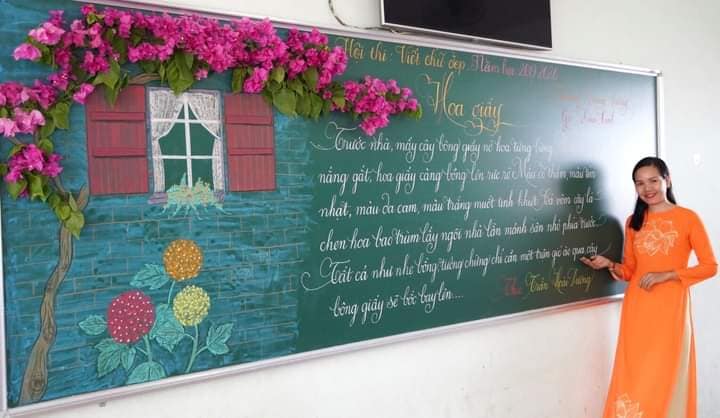 Hội thi: Viết chữ đẹp Năm học
Hoa giấy
Trước nhà, mấy cây bông giấy nở hoa tưng bừng.
nắng gắt, hoa giấy càng bồng lên rực rỡ. Màu đỏ thắm, màu tím
nhạt, màu da cam, màu trắng muốt tinh khiết. Cả vòm cây lá
chen hoa bao trùm lấy ngôi nhà lẫn mảnh sân nhỏ phía trước.
Tất cả như nhẹ bỗng, tưởng chừng chỉ cần một trận gió ào qua, cây
bông giấy sẽ bốc bay lên....
Theo Trần Hoài Dương